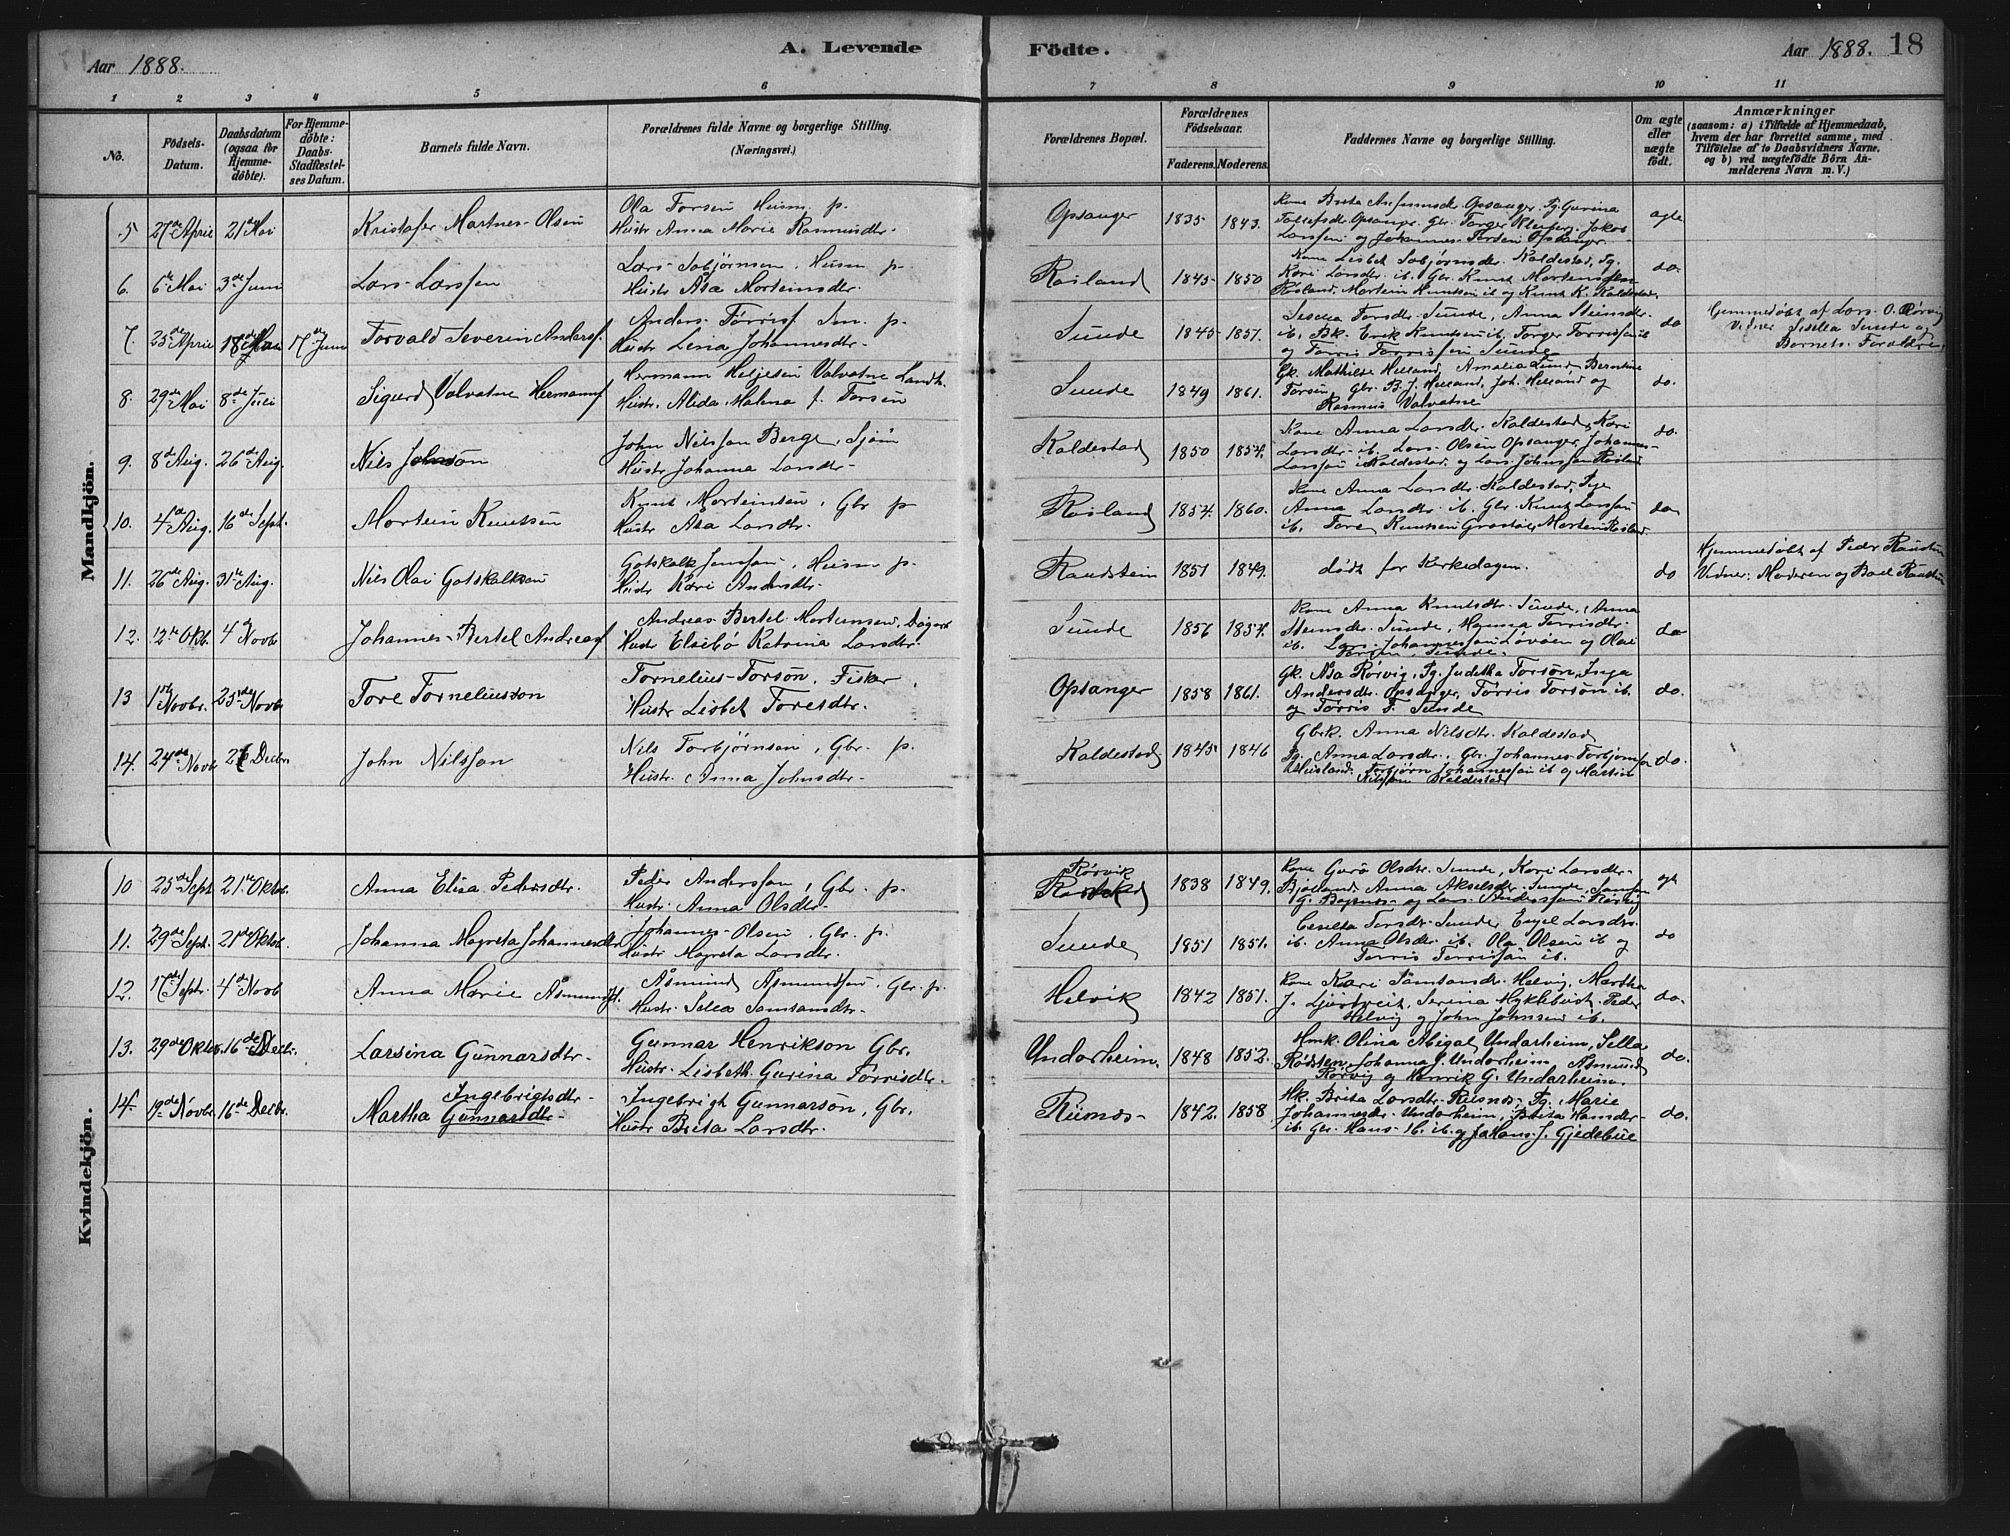 A. Levende Födte.
Aar 1888. Aar 1888. 18
1 2 3 4 5 6 7 8 9 10 11
No.
Födsels-Datum.
Daabsdatum (ogsaa for Hjemmedöbte).
For Hjemmedöbte: Daabs-Stadfæstelses Datum.
Barnets fulde Navn.
Forældrenes fulde Navne og borgerlige Stilling. (Næringsvei.)
Forældrenes Bopæl.
Forældrenes Födselsaar.
Faderens. Moderens.
Faddernes Navne og borgerlige Stilling.
Om ægte eller uægte födt.
Anmærkninger
(saasom: a) i Tilfælde af Hjemmedaab, hvem der har forrettet samme, med Tilföielse af to Daabsvidners Navne, og b) ved uægtefödte Börn Anmelderens Navn m. V.)
Mandkjön.
5 27de April 21 Mai Kristofer Martnes Olsen
Ola Torsen Husm. p.
Hustr Anna Marie Rasmusdtr.
Opsanger 1835 1843. ægte
6. 6te Mai 3de Juni Lars Larssen
Lars Sobjørnsen, Husm p.
Hustr Åsa Morteinsdtr.
Røsland 1845 1850 do
Kone Lisbet Sobjørnsdtr. Kaldestad, Pg.
Kari Larsdtr. ib. Gbr. Knut Morteinssen
Røsland, Mortein Knutsen ib og Knut K. Kaldestad.
7. 25de April 17de Juni Torvald Severin Andersf.
Anders Tørrisf. p.
Hustr Lena Johannesdtr.
Sunde 1845 1851. do
Hjemmedøbt af Lars O. Rørvig
Vidner Sesella Sunde og
Barnets Forældre.
8. 29de Mai 8de Juli Sigurd Valvatne Hermannf
Hermann Heljesen Valvatne Landh.
Hustr. Alida Malena f. Torsen
Sunde 1849 1861. do.
Gk. Mathilde Helland, Amalia Lund, Berntine
Torsen, Gbr. B. J. Helland, Joh. Helland og
Rasmus Valvatne
9. 8de Aug. 26de Aug. Nils Johnson
John Nilssøn Berge, Sjöm
Hustr Johanna Larsdtr.
Kaldestad 1850 1854. do.
Kone Anna Larsdtr. Kaldestad, Kari
Larsdtr. ib. Lars Olsen Opsanger, Johannes
Larssøn Kaldestad og Lars Johnssøn Røsland
10. 4de Aug. 16de Sept. Mortein Knutsen
Knut Morteinsen, Gbr p
Hustr Åsa Larsdtr.
Røsland 1854. 1860. do
Kone Anna Larsdtr. Kaldestad, Pige
Anna Larsdtr. ib. Gbr Knut Larssøn
ib. Tore Knutsen Mortein Røsland
11. 26de Aug. 31te Aug. Nils Olai Gotskalksen
Gotskalk Jenssøn, Husm p.
Hustr Kari Andersdtr.
Raudstein 1851 1849. døde før Kirkedagen. do
Hjemmedøbt af Peder Raustein
Vidner: Moderen og Raustein
12. 12te Oktbr. 4de Novbr Johannes Bertel Andreasf
Andreas Bertel Mortensen, Dagarb
Hustr Elsebø Katrina Larsdtr.
Sunde 1856 1854. do
Kone Anna Knutsdtr. Sunde, Anna
Steinsdtr. Sunde, Hanna Tørrisdtr.
ib. Lars Johannessøn Løvøen og Olai
Torsen, Sunde.
13 1ste Novbr. 25de Novbr Tore Torneliussøn
Tornelius Torsøn, Fisker
Hustr Lisbet Toresdtr.
Opsanger 1858 1861. do.
Gk. Åsa Rørvig, Pg. Judetha Torsøn, Inga
Andersdtr. Opsanger, Tørris Torsøn ib.
og Tørris T. Sunde
14. 24de Novbr 26 Decbr. John Nilssøn
Nils Torbjørnsen, Gbr. p.
Hustr. Anna Johnsdtr.
Kaldestad 1845 1846 do.
Gbrk. Anna Nilsdtr Kaldestad
Pg. Anna Larsdtr, Gbr. Johannes Torbjørnsøn
Husland. Torbjørn Johannessøn ib og Martin
Nilssøn Kaldestad
Kvindekjön.
10 25de Sept 21de Oktbr. Anna Elisa Pedersdtr.
Peder Anderssøn, Gbr. p.
Hustr. Anna Olsdtr.
Rørvik 1838 1849. ægt
Kone Gurø Olsdtr. Sunde, Kari Larsdtr.
Anna Akselsdtr. Sunde, Samson
og Lars Anderssøn Rørvig
11. 29de Sept. 21de Oktbr. Johanna Magreta Johannesdtr
Johannes Olsen, Gbr. p.
Hustr Magreta Larsdtr.
Sunde 1851 1851. do
Ceselia Torsdtr. Sunde, Engel Larsdtr.
ib. Anna Olsdtr. ib. Ola Olsen ib og
Tørris Tørrissøn ib.
12. 17de Septr. 4de Novb Anna Marie Åsmundsdt.
Åsmund Åsmundsøn, Gbr. p.
Hustr. Selea Samsonsdtr.
Helvik 1842 1851. do.
Kone Kari Samsonsdr. Helvig, Martha
J. Ljustveit, Serina Myklebust. Peder
Helvig og John Johnsen ib.
13. 29de Oktbr. 16de Decbr. Larsina Gunnarsdtr.
Gunnar Henrikson Gbr.
Hustr. Lisbeth Gurina Tørrisdtr.
Undarheim. 1848 1852. do.
Hmk. Olina Abigal Undarheim, Sella
Rødsten, Johanna J. Undarheim, Åsmund
Rørvig og Henrik G. Undarheim.
14. 19de Novbr 16de Decbr. Martha Ingebrigtsdtr Gunnarsdtr.
Ingebrigt Gunnarsøn, Gbr.
Hustr Brita Larsdtr.
Riisnes 1842. 1858 do.
Hk. Brita Larsdtr. Riisnes, Pg. Marie
Johannesdr. Undarheim, Brita Hansdtr.
ib. Gbr. Hans H. ib. og Hans J. Gjedebue